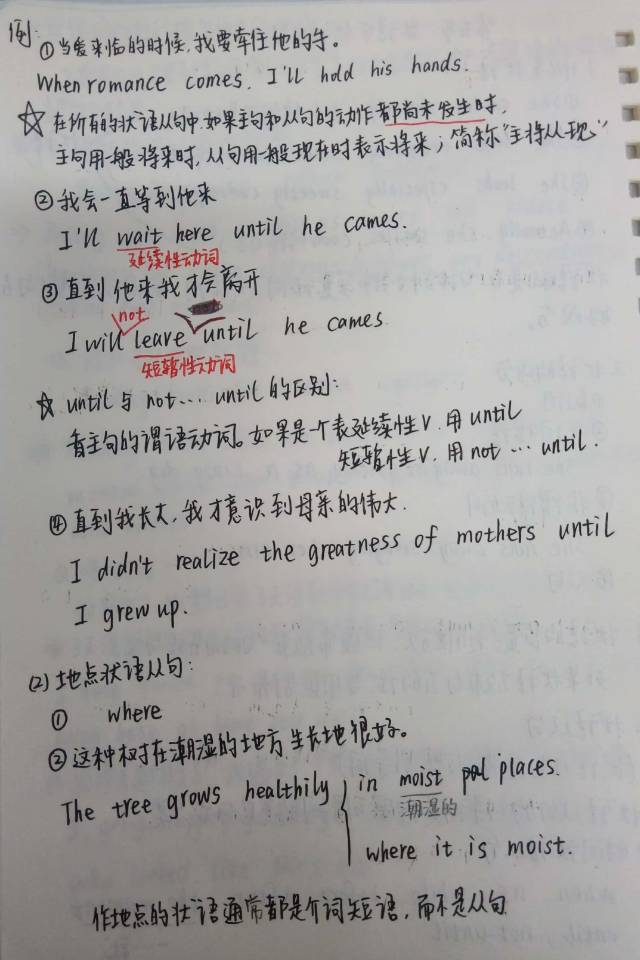 例: ①当爱来临的时候,我要牵住他的手。
When romance comes, I'll hold his hands.
☆ 在所有的状语从句中,如果主句和从句的动作都尚未发生时,
主句用一般将来时,从句用一般现在时表示将来;简称"主将从现"
②我会一直等到他来
I'll wait here until he cames.
延续性动词
③直到他来我才会离开
not
I will leave until he cames
短暂性动词
☆ until与not…until的区别:
看主句的谓语动词。如果是一个表延续性V.用until
短暂性V.用not…until.
④直到我长大,我才意识到母亲的伟大.
I didn't realize the greatness of mothers until
I grew up.
(2)地点状语从句:
① where
②这种树在潮湿的地方生长地很好。
The tree grows healthily in moist places.
潮湿的
where it is moist.
作地点的状语通常都是介词短语,而不是从句